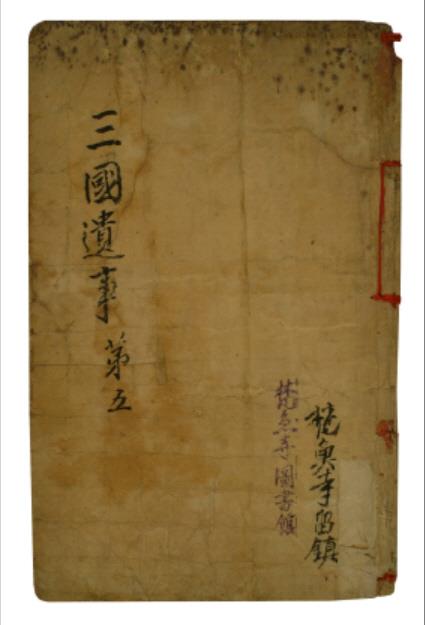 梵魚寺留鎭
梵魚寺圖書館
三國遺事 第五